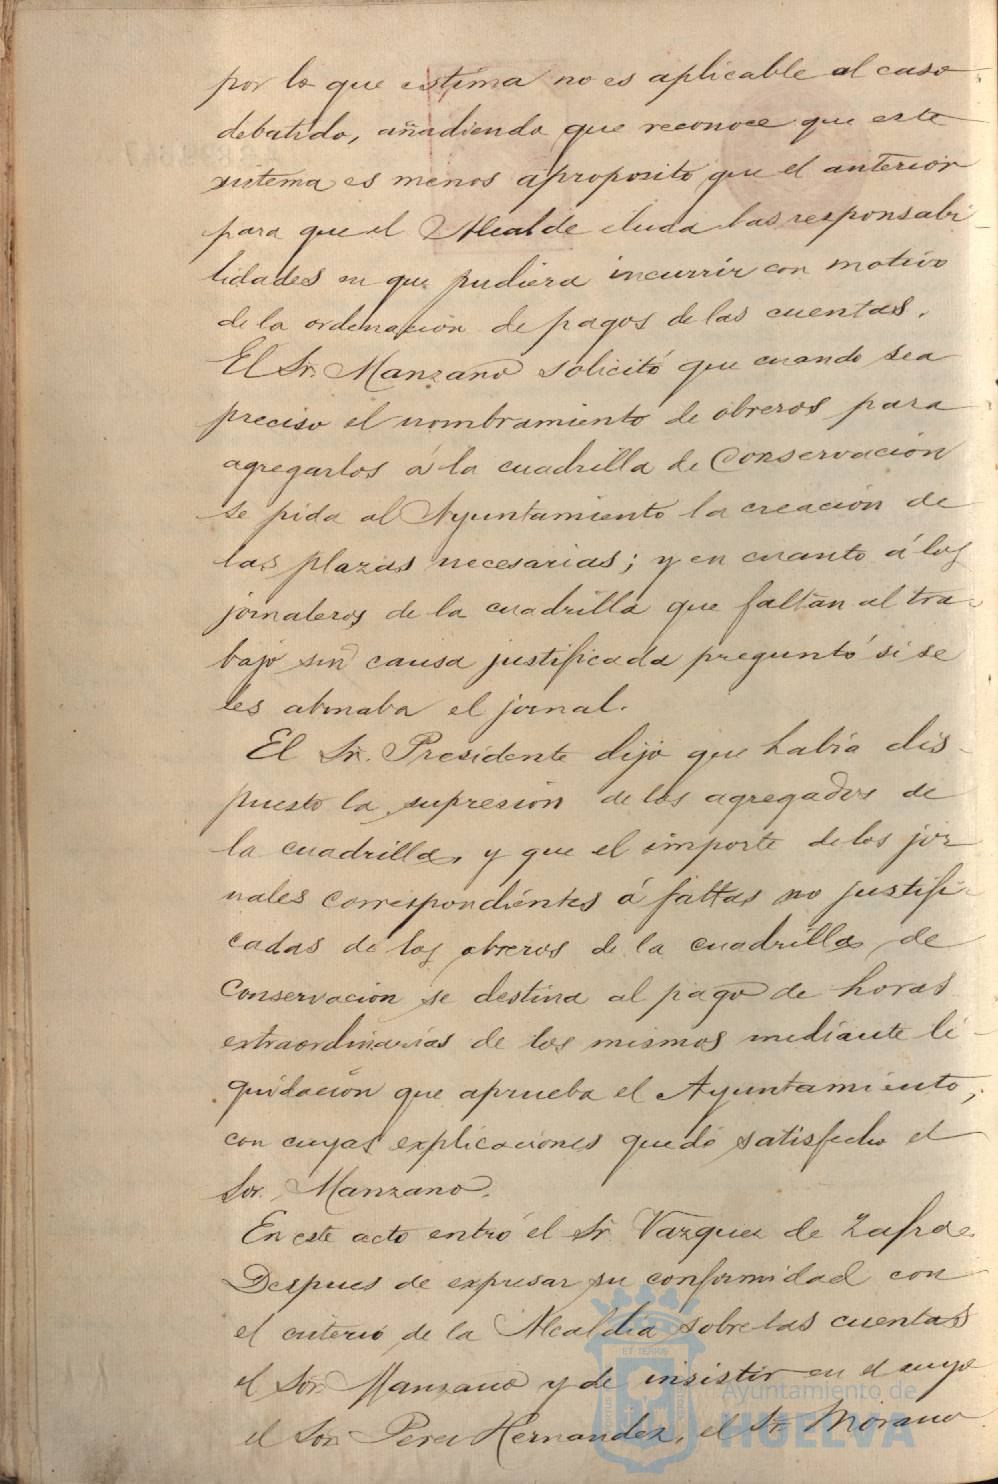 por lo que estima no es aplicable al caso
debatido, añadiendo que reconoce que este
sistema es menos apropósito que el anterior
para que el Alcalde eluda las responsabi
lidades en que pudiera incurrir con motivo
de la ordenación de pagos de las cuentas.
El Sr. Manzano solicitó que cuando sea
preciso el nombramiento de obreros para
agregarlos á la cuadrilla de Conservación
se pida al Ayuntamiento la creación de
las plazas necesarias; y en cuanto á los
jornaleros de la cuadrilla que faltan al tra-
bajo sin causa justificada preguntó si se
les abonaba el jornal.
El Sr. Presidente dijo que había dis-
puesto la supresión de los agregados de
la cuadrilla, y que el importe de los jor
nales correspondientes á faltas no justifi-
cadas de los obreros de la cuadrilla de
Conservación se destina al pago de horas
extraordinarias de los mismos mediante li-
quidación que aprueba el Ayuntamiento;
con cuyas explicaciones quedó satisfecho el
Sor. Manzano.
En este acto entró el Sr. Vazquez de Zafra.
Despues de expresar su conformidad con
el criterio de la Alcaldía sobre las cuentas
el Sor. Manzano y de insistir en el suyo
el Sor. Perez Hernandez, el Sr. Morano
ET TERRÆ
Ayuntamiento de
HUELVA